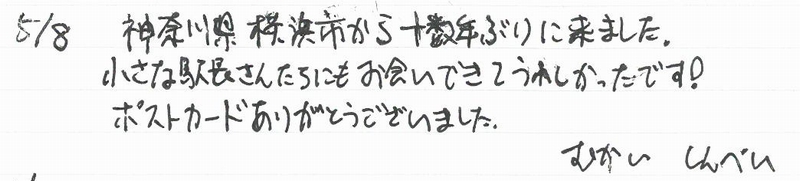 5/8 神奈川県横浜市から十数年ぶりに来ました。
小さな駅長さんたちにもお会いできてうれしかったです!
ポストカードありがとうございました。
むかい しんぺい